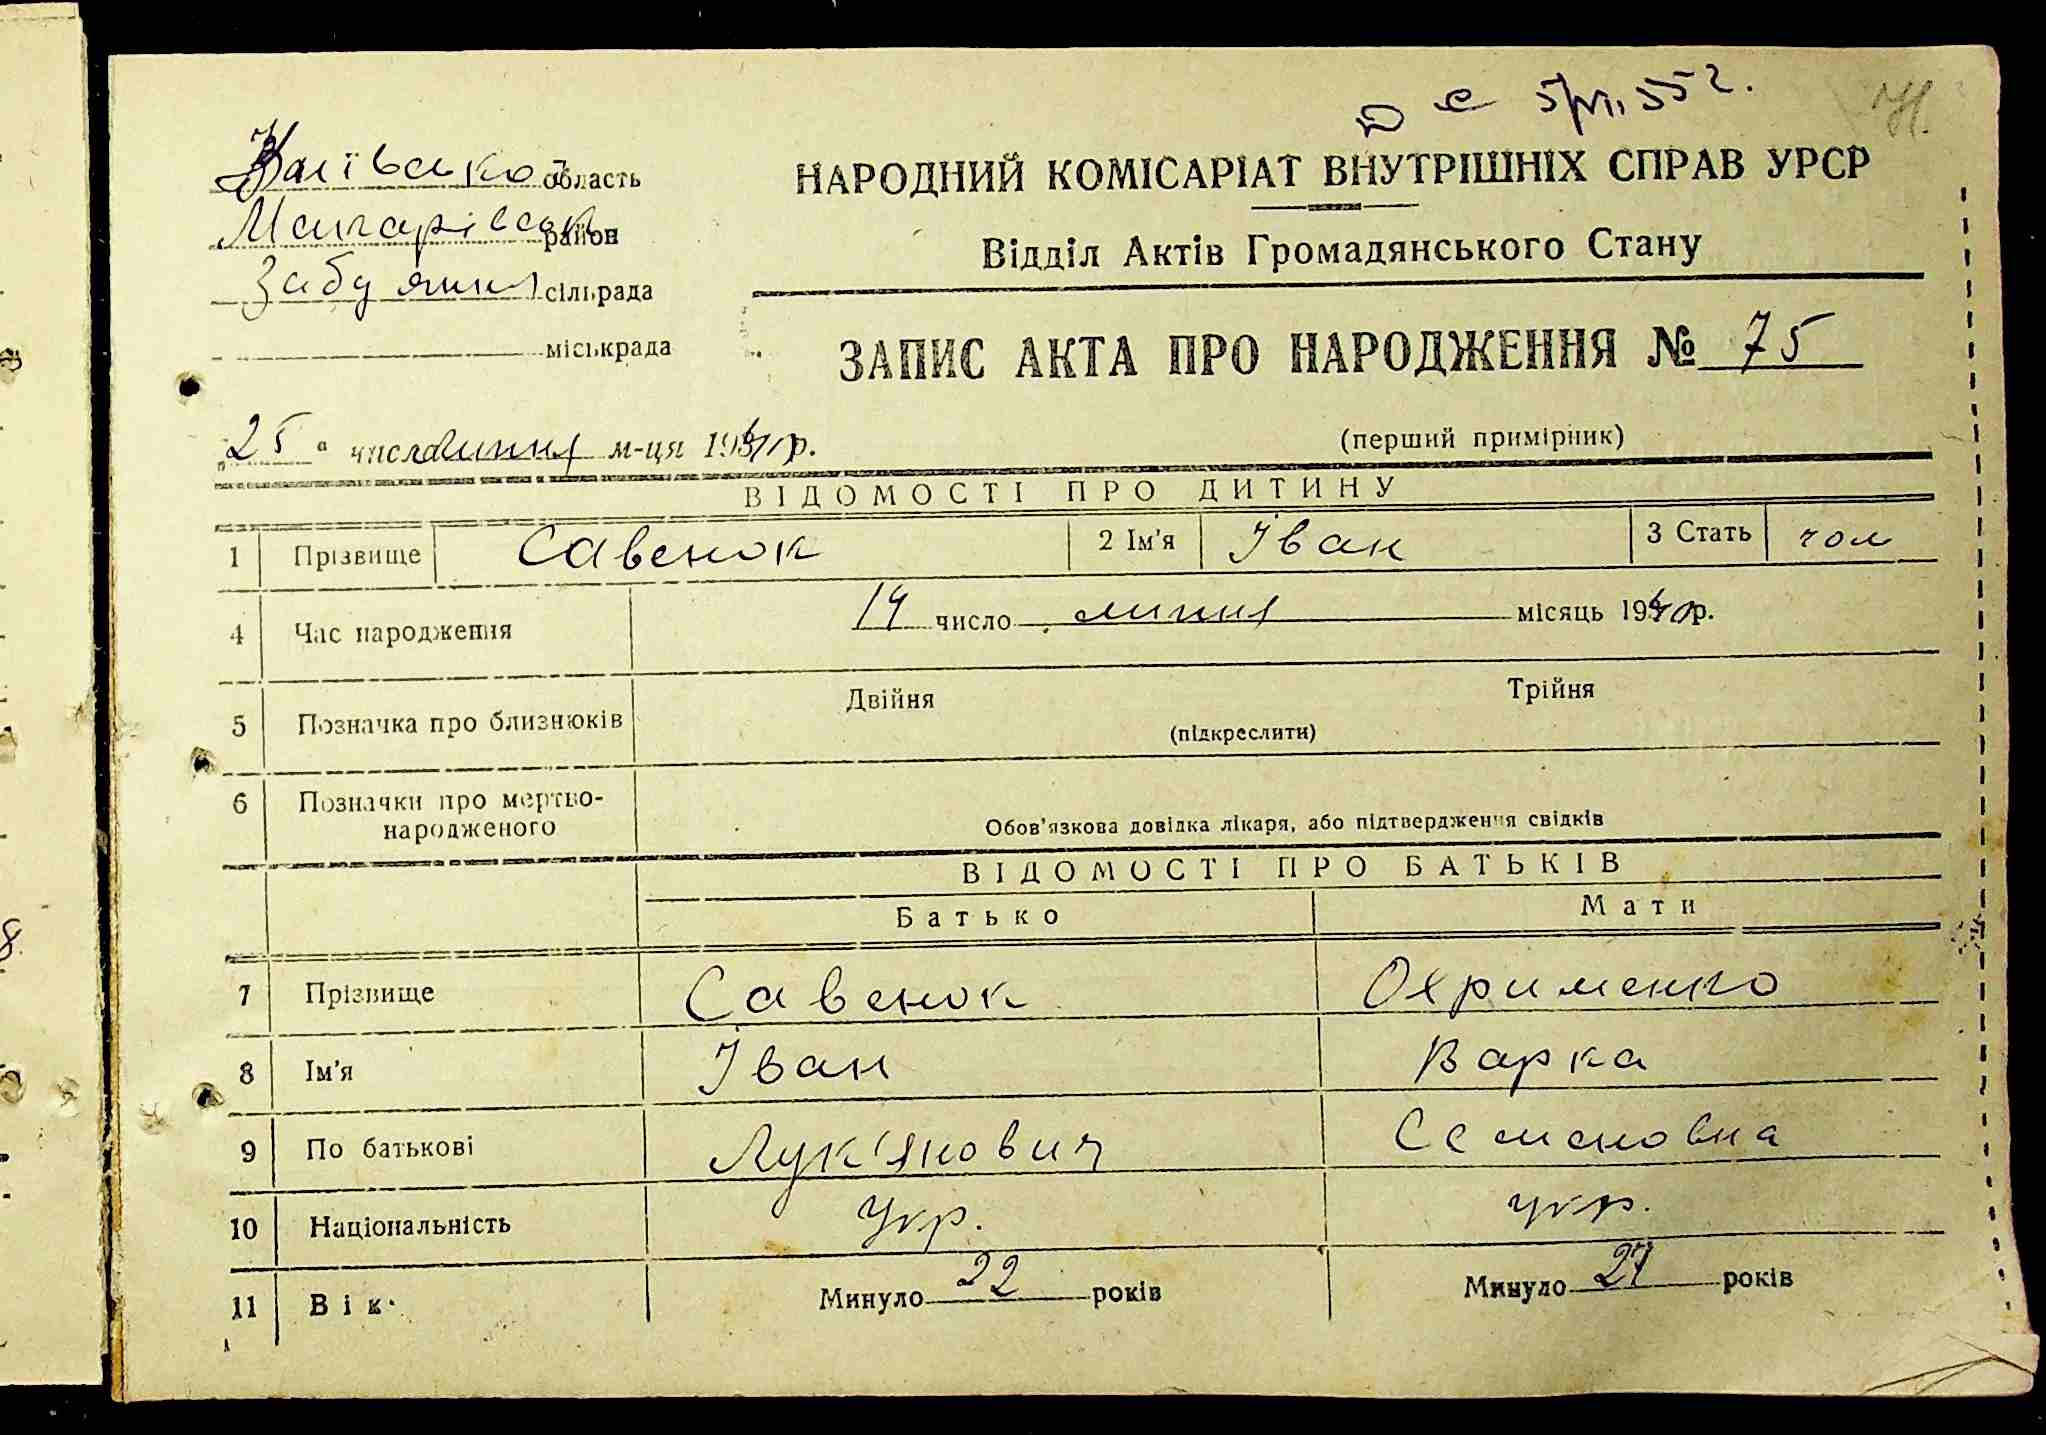 5/VI, 55 г.
область
НАРОДНИЙ КОМІСАРІАТ ВНУТРІШНІХ СПРАВ УРСР
район
Відділ Актів Громадянського Стану
сільрада
міськрада
ЗАПИС АКТА ПРО НАРОДЖЕННЯ № 75
„25“ числа липня м-ця р.
(перший примірник)
ВІДОМОСТІ ПРО ДИТИНУ
1 Прізвище Савенок 2 Ім'я Іван 3 Стать чол
4 Час народження 14 число липня місяць 1940 р.
5 Позначка про близнюків Двійня Трійня
(підкреслити)
6 Позначки про мертво-
народженого
Обов'язкова довідка лікаря, або підтвердження свідків
ВІДОМОСТІ ПРО БАТЬКІВ
Батько Мати
7 Прізвище Савенок Охрименко
8 Ім'я Іван Варка
9 По батькові Лук'янович Семеновна
10 Національність Укр. укр.
11 Вік Минуло 22 років Минуло 27 років